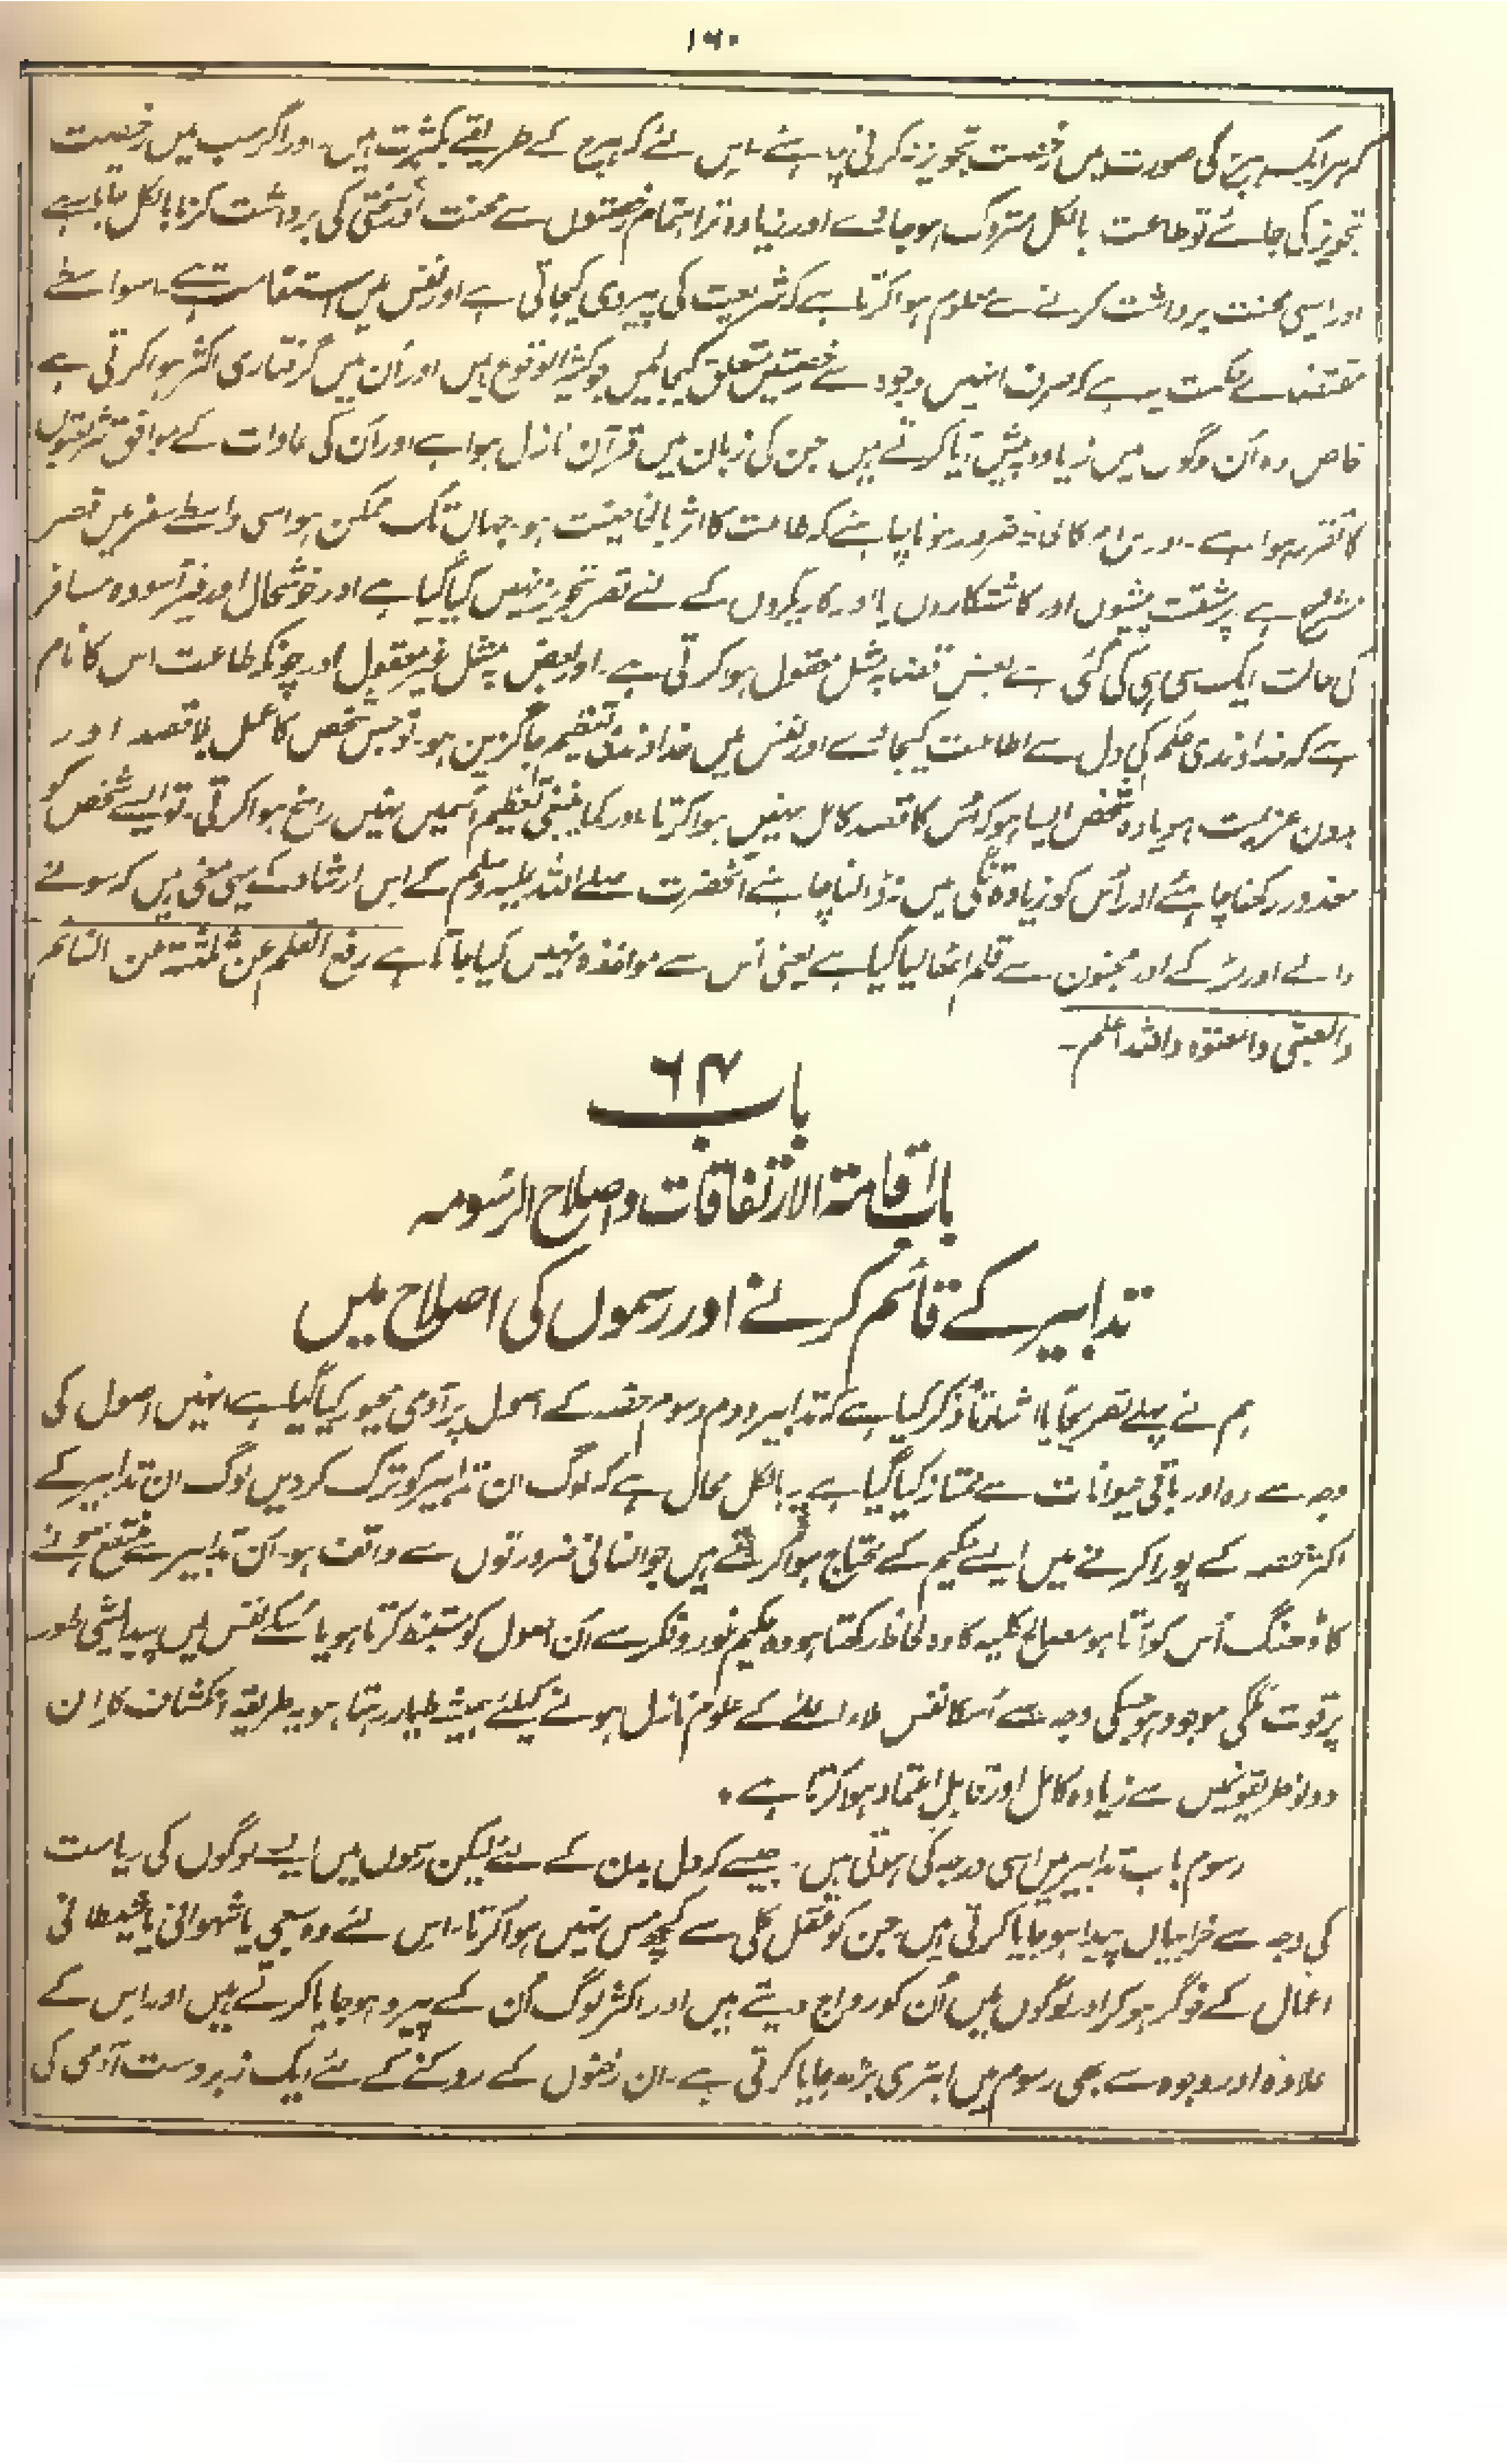 ۱۶۰
کہ ہر ایک ہرج کی صورت میں رخصت تجویز نہ کرنی چاہئے۔ اس لئے کہ ہرج کے طریقے بکثرت ہیں۔ اور اگر سب میں رخصت
تجویز کی جائے تو طاعت بالکل متروک ہو جائے اور زیادہ تر اہتمام رخصتوں سے محنت اور سختی کی برداشت کرنا بالکل جاتا ہے
اور ایسی محنت برداشت کرنے سے معلوم ہوا کرتا ہے کہ شریعت کی پیروی کیجاتی ہے اور نفس میں استقامت ہے۔ اسواسطے
مقتضائے حکمت یہ ہے کہ صرف انہیں وجوہ سے رخصتیں متعلق کیجائیں جو کثیر الوقوع ہیں اور اُن میں گرفتاری اکثر ہوا کرتی ہے
خاص وہ اُن لوگوں میں زیادہ پیش آیا کرتے ہیں جن کی زبان میں قرآن نازل ہوا ہے اور اُن کی عادات کے موافق شریعتوں
کا تقرر ہوا ہے۔ اور اس امر کا لحاظ ضرور ہونا چاہئے کہ طاعت کا اثر بالخاصیت ہو۔ جہاں تک ممکن ہو اسی واسطے سفر میں قصر
مشروع ہے پرمشقت پیشوں اور کاشتکاروں یا اور کاریگروں کے لئے قصر تجویز نہیں کیا گیا ہے اور خوشحال اور غیر آسودہ مسافر
کی حالت ایک سی ہی کی گئی ہے بعض قضا بہ مثل معقول ہوا کرتی ہے۔ اور بعض بمثل غیر معقول اور چونکہ طاعت اس کا نام
ہے کہ خداوندی حکم کی دل سے اطاعت کیجائے اور نفس میں خداوندی تعظیم جاگزین ہو۔ تو جس شخص کا عمل بلا قصد اور
بدون عزیمت ہو یا وہ شخص ایسا ہو کہ اُس کا قصد کامل نہیں ہوا کرتا اور کما ینبغی تعظیم اُسمیں نہیں راسخ ہوا کرتی۔ تو ایسے شخص کو
معذور رکھنا چاہئے اور اُس کو زیادہ تنگی میں نہ ڈالنا چاہئے آنحضرت صلے اللہ علیہ وسلم کے اس ارشاد کے یہی معنی ہیں کہ سونے
والے اور لڑکے اور مجنون سے قلم اٹھا لیا گیا ہے یعنی اُس سے مواخذہ نہیں کیا جاتا ہے رفع القلم عن ثلثۃ عن النائم
والصبی والمعتوہ واللہ اعلم۔
باب ۶۴
باب اقامۃ الارتفاقات و اصلاح الرسوم
تدابیر کے قائم کرنے اور رسموں کی اصلاح میں
ہم نے پہلے تصریحاً یا اشارتاً ذکر کیا ہے کہ تدابیر دوم و سوم حقہ کے اصول پر آدمی مجبور کیا گیا ہے انہیں اصول کی
وجہ سے وہ اور باقی حیوانات سے ممتاز کیا گیا ہے یہ بالکل محال ہے کہ لوگ ان تدابیر کو ترک کر دیں لوگ ان تدابیر کے
اکثر حصہ کے پورا کرنے میں ایسے حکیم کے محتاج ہوا کرتے ہیں جو انسانی ضرورتوں سے واقف ہو۔ اُن تدابیر سے منتفع ہونے
کا ڈھنگ اُس کو آتا ہو مصالح کلیہ کا وہ لحاظ رکھتا ہو وہ حکیم غور و فکر سے اُن اصول کو مستنبط کرتا ہو یا اُسکے نفس میں پیدایشی طور
پر قوت ملکی موجود ہو جسکی وجہ سے اُسکا نفس ملاء اعلٰے کے علوم نازل ہونے کیلئے ہمیشہ طیار رہتا ہو یہ طریقہ انکشاف کا اِن
دونو طریقونمیں سے زیادہ کامل اور قابل اعتماد ہوا کرتا ہے ۔
رسوم باب تدابیر میں اسی درجہ کی ہوتی ہیں۔ جیسے کہ دل بدن کے لئے لیکن رسموں میں ایسے لوگوں کی ریاست
کی وجہ سے خرابیاں پیدا ہو جایا کرتی ہیں جن کو عقل کلی سے کچھ مس نہیں ہوا کرتا۔ اس لئے وہ سبعی یا شہوانی یا شیطانی
اعمال کے خوگر ہو کر اور لوگوں میں اُن کو رواج دیتے ہیں اور اکثر لوگ اُن کے پیرو ہو جایا کرتے ہیں اور اس کے
علاوہ اور وجوہ سے بھی رسوم میں ابتری بڑھ جایا کرتی ہے۔ ان رخنوں کے روکنے کے لئے ایک زبردست آدمی کی